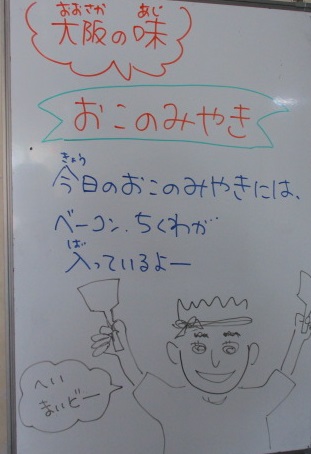 おおさか あじ
大阪の味
おこのみやき
きょう
今日のおこのみやきには、
ベーコン、ちくわが
ばい
入っているよー
へい
まいどー